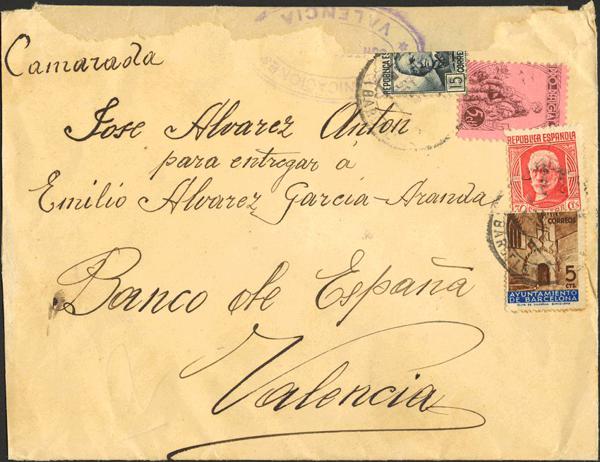 VALENCIA
CON
Camarada
Jose Alvarez Anton
para entregar á
Emilio Alvarez Garcia-Aranda
Banco de España
Valencia
REPUBLICA E
15
CORREOS
REPUBLICA ESPAÑOLA
CTS
CORREOS
5
CTS.
AYUNTAMIENTO
DE BARCELONA